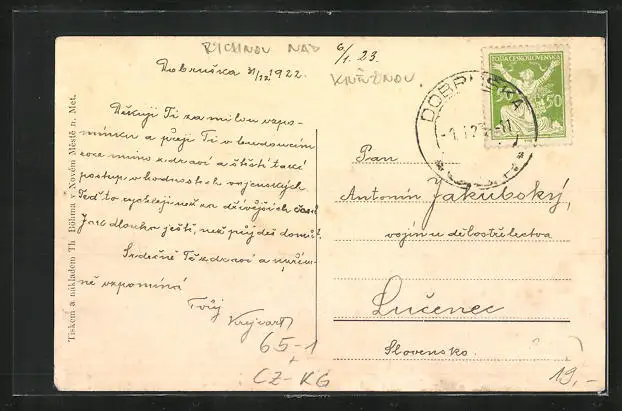 RYCHNOV NAD
KNĚŽNOU
6/1. 23.
Dobruška 31/12 1922.
Děkuji Ti za milou vzpo-
mínku a přeji Ti v budoucím
roce mimo zdraví a štěstí také
postup v hodnostech vojenských
Teď to rychleji než za dřívějších časů.
Jak dlouho ještě, než přijdeš domů?
Srdečně Tě zdraví a upřím-
ně vzpomíná
Tvůj
65-1
CZ-KG
Tiskem a nákladem Th. Böhma v Novém Městě n. Met.
POŠTA ČESKOSLOVENSKÁ
50
DOBRUŠKA
Pan
Antonín Jakubský,
vojín u dělostřelectva
Lučenec
Slovensko.
19,-